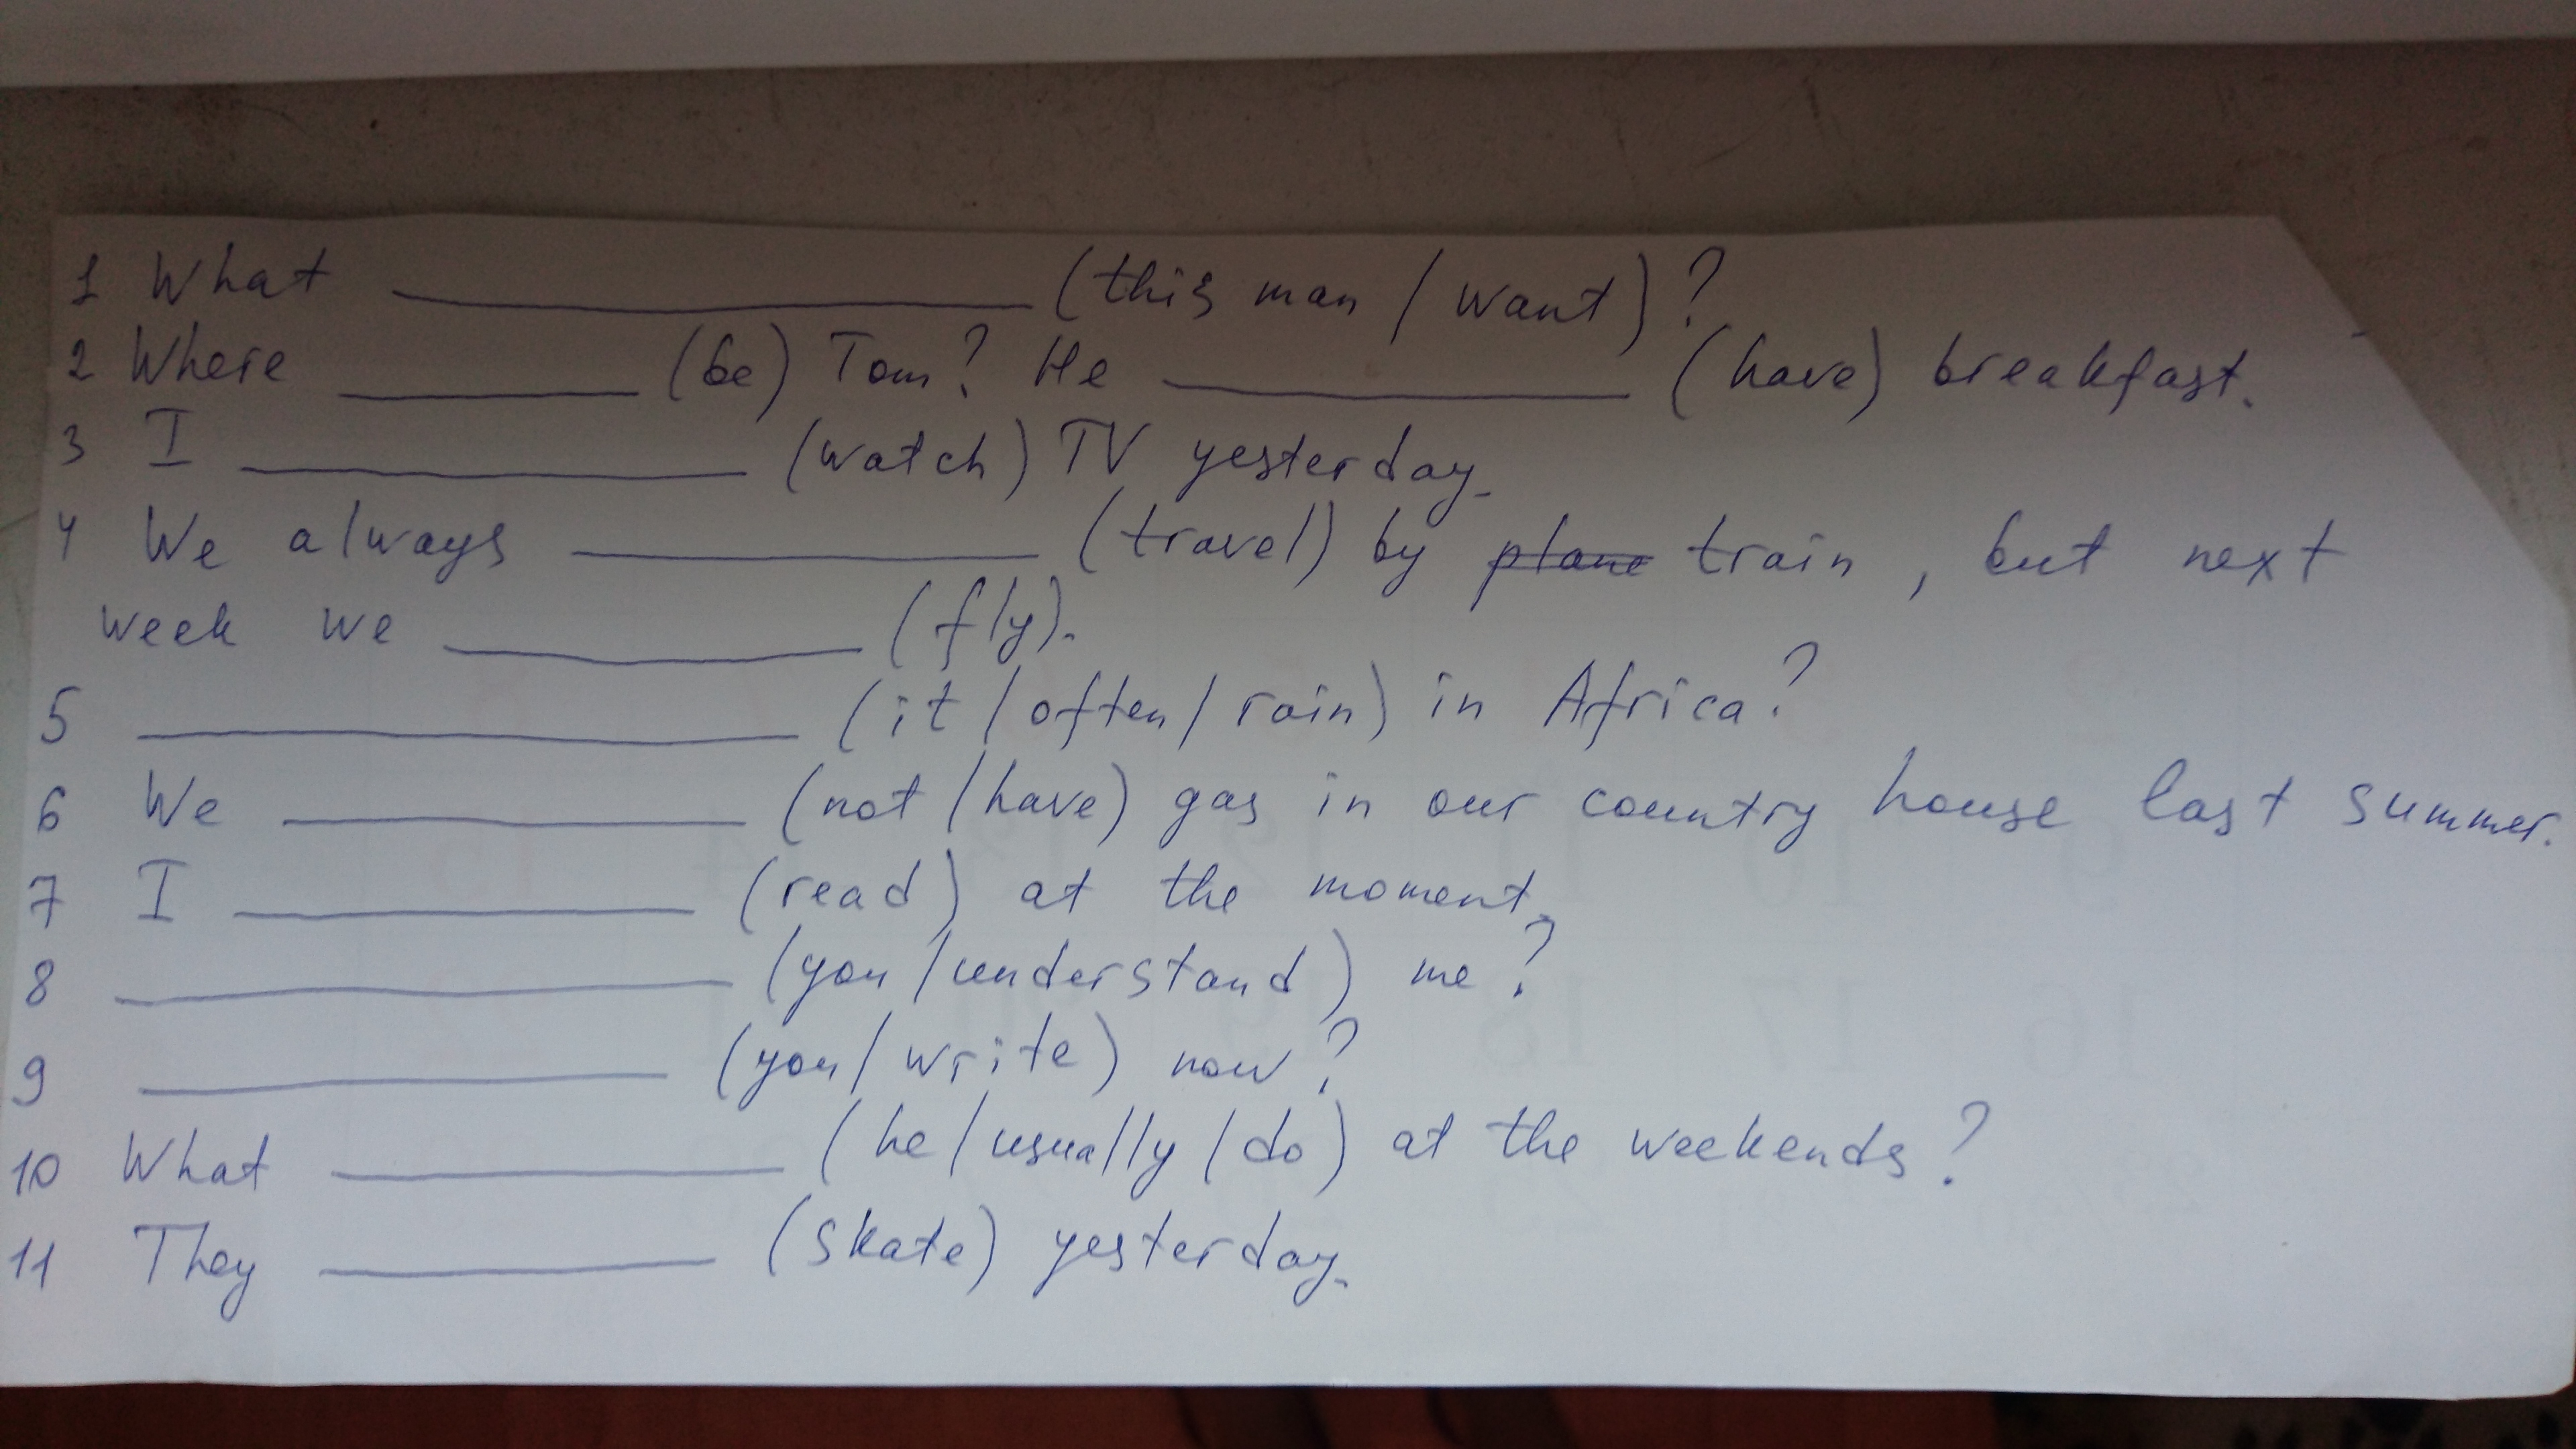 1 What ______ (this man / want)?
2 Where ______ (be) Tom? He ______ (have) breakfast.
3 I ______ (watch) TV yesterday.
4 We always ______ (travel) by ~~plane~~ train, but next
week we ______ (fly).
5 ______ (it / often / rain) in Africa?
6 We ______ (not / have) gas in our country house last summer.
7 I ______ (read) at the moment.
8 ______ (you / understand) me?
9 ______ (you / write) now?
10 What ______ (he / usually / do) at the weekends?
11 They ______ (skate) yesterday.